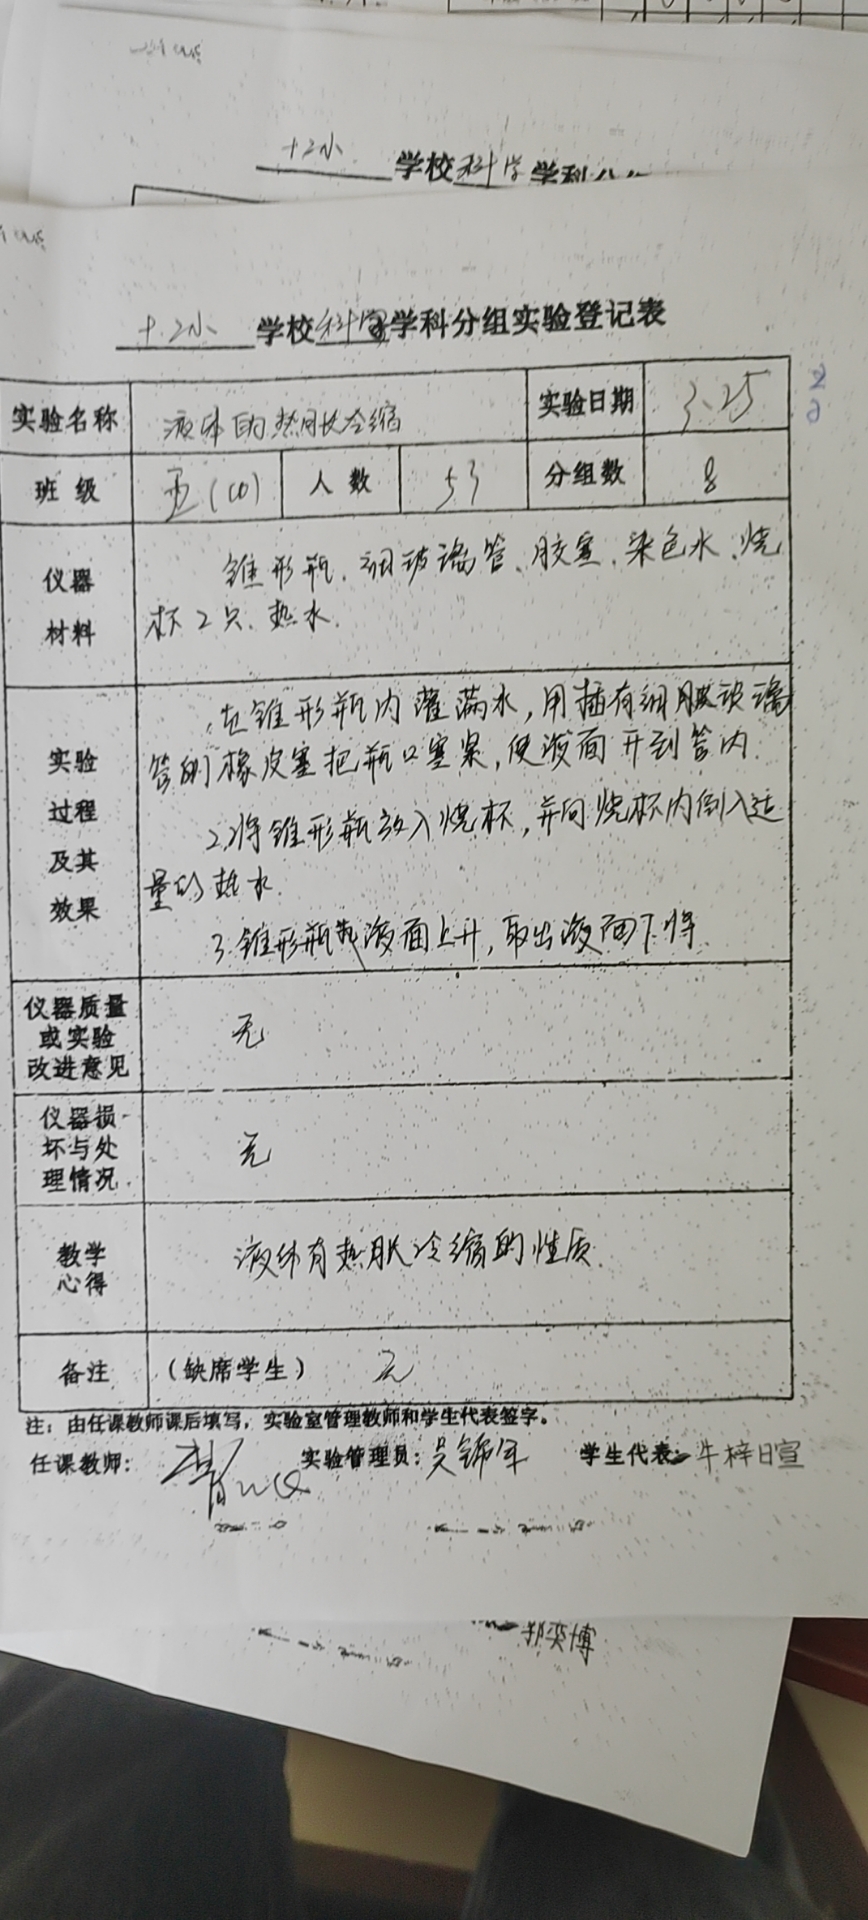 十2小 学校科学学科分
十.2小 学校科学学科分组实验登记表
实验名称 液体的热胀冷缩 实验日期 3.25
班 级 五(10) 人 数 53 分组数 8
仪器
材料
锥形瓶、细玻璃管、胶塞、染色水、烧
杯2只、热水.
实验
过程
及其
效果
1.在锥形瓶内灌满水，用插有细玻璃
管的橡皮塞把瓶口塞紧，使液面升到管内.
2.将锥形瓶放入烧杯，并向烧杯内倒入适
量的热水.
3.锥形瓶 液面上升，取出液面下将.
仪器质量
或实验
改进意见
无
仪器损
坏与处
理情况
无
教学
心得
液体有热胀冷缩的性质.
备注 （缺席学生） 无
注：由任课教师课后填写，实验室管理教师和学生代表签字。
任课教师： 实验管理员：吴锦年 学生代表：牛梓暄
郭奕博